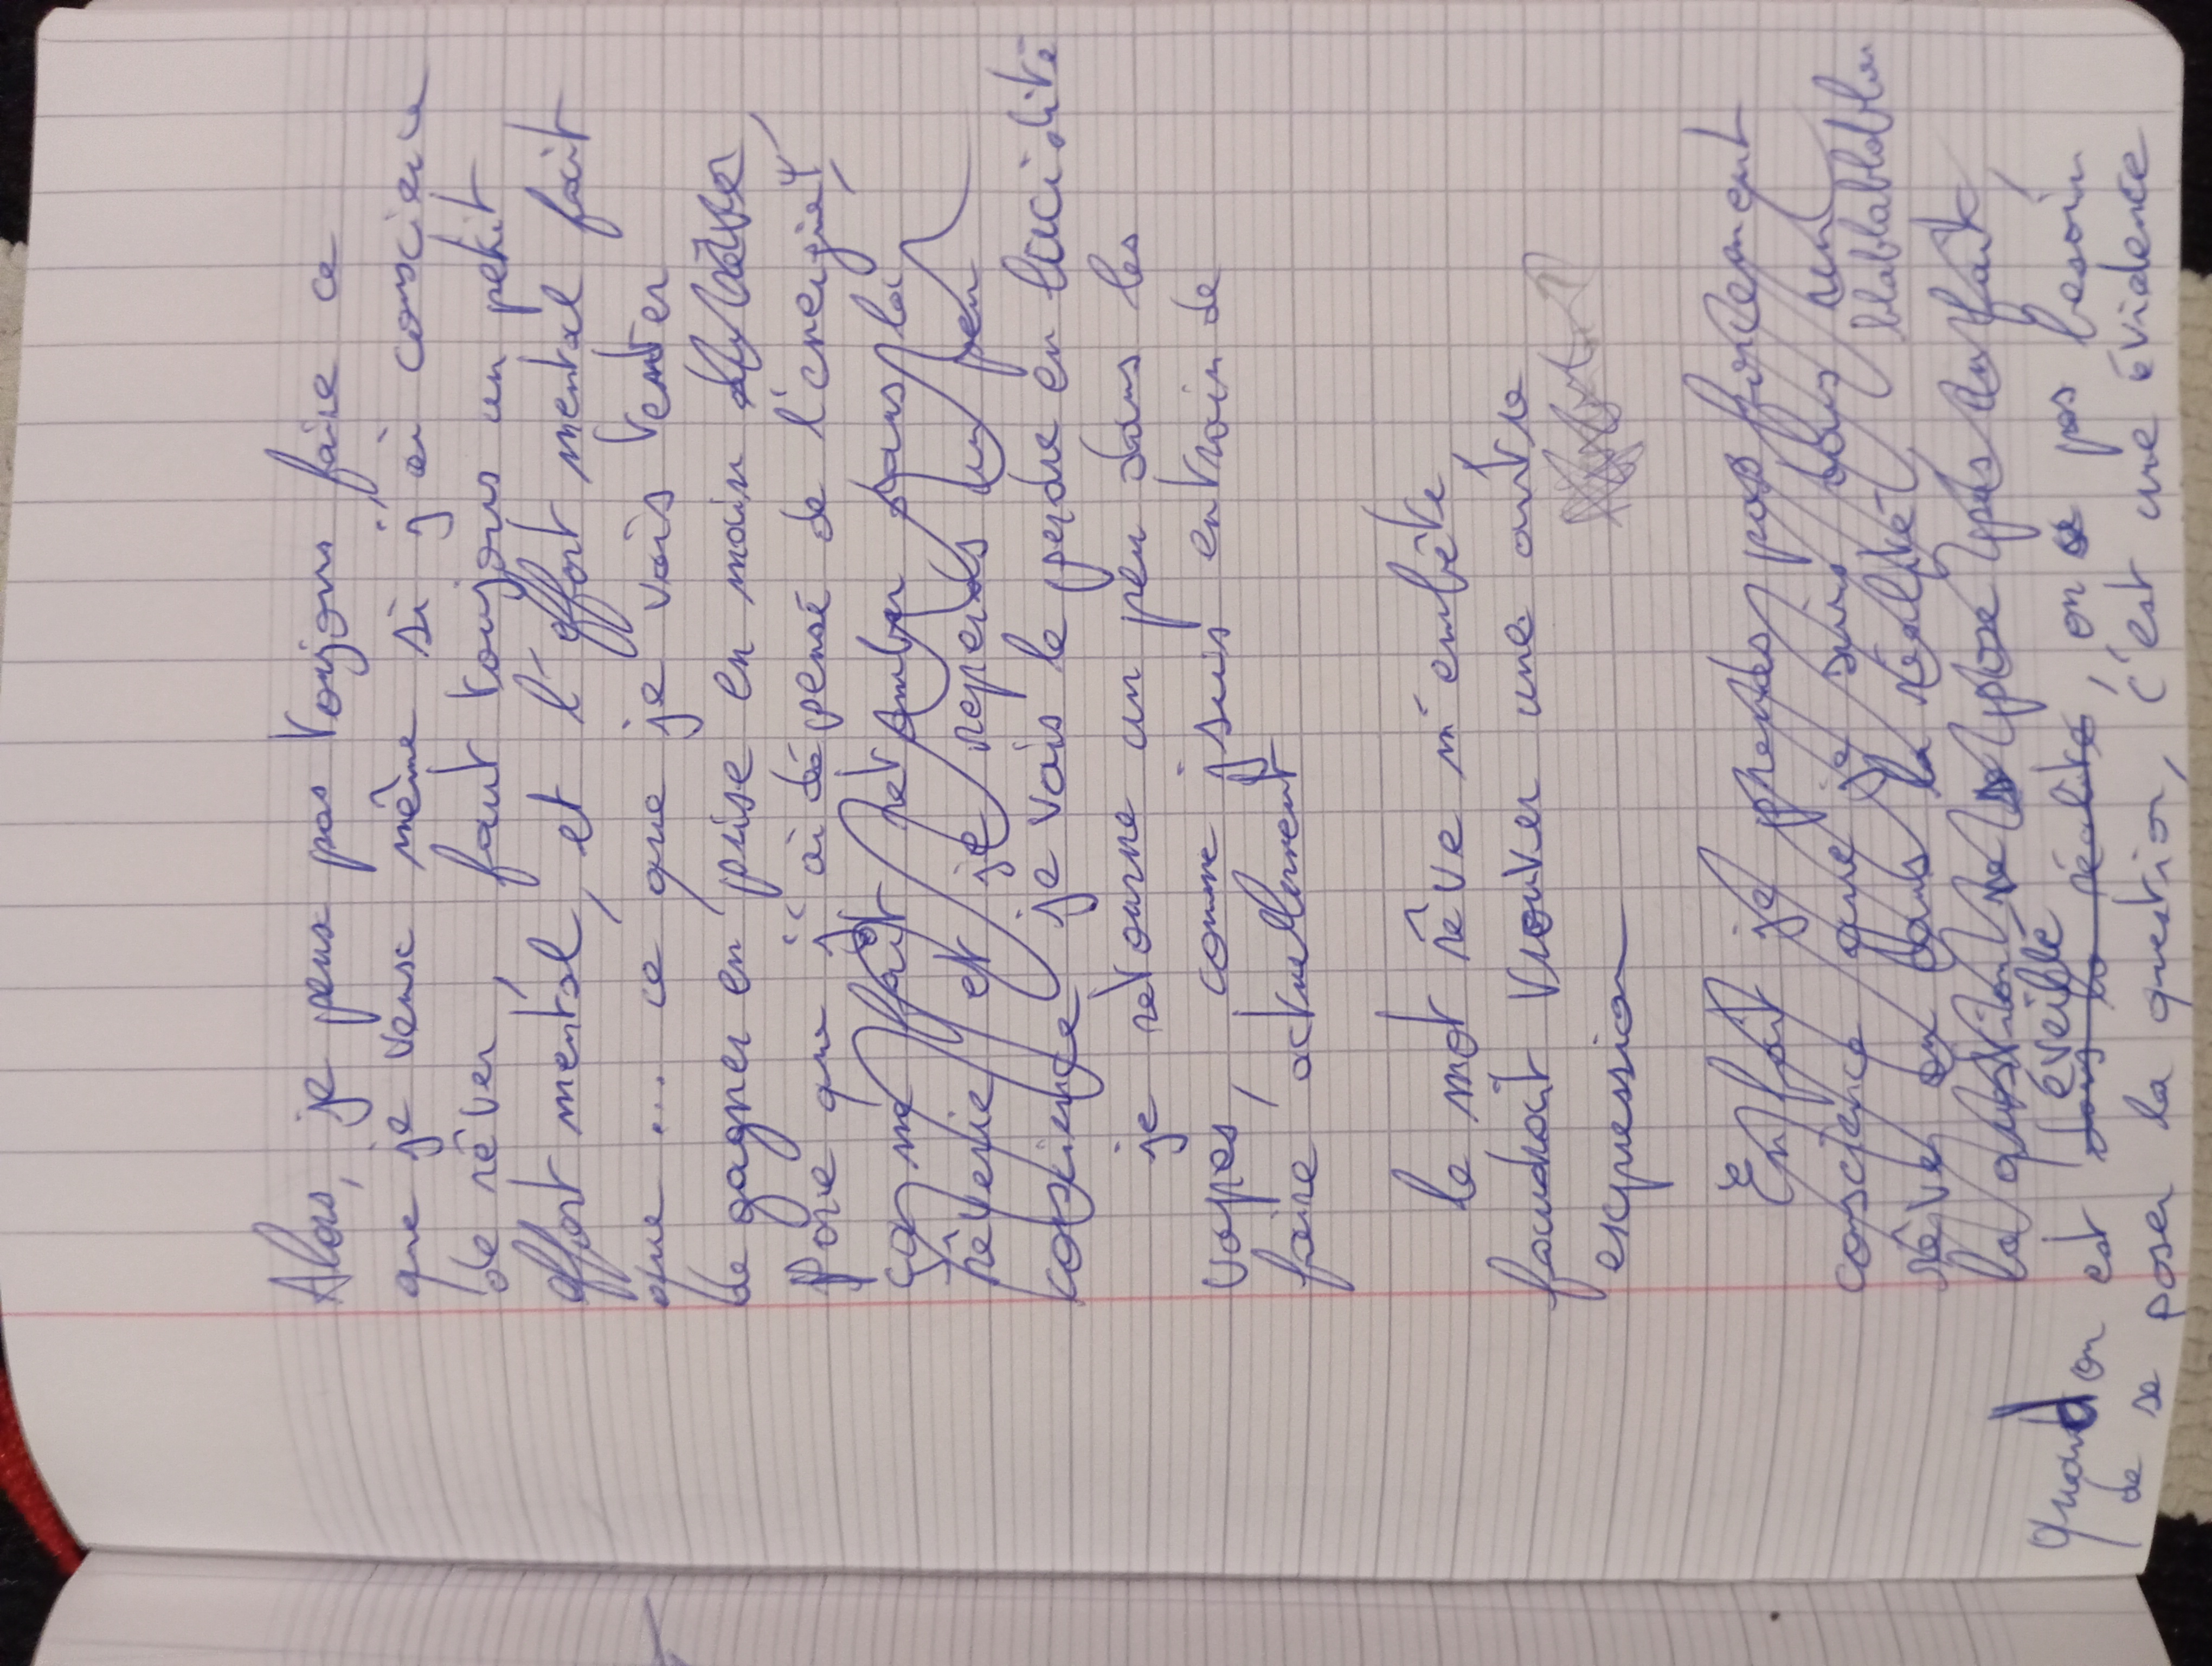 Alors, je peux pas toujours faire ce
que je veux même si j'ai conscience
de rêver, faut toujours un petit
effort mental, et l'effort mental fait
que ... ce que je vais tenter
de gagner en prise en main du rêve,
Parce que j'ai dépensé de l'énergie,
ça me fait retomber dans la
rêverie et je reperds un peu
conscience je vais le perdre en lucidité
je retourne un peu dans les
vapes, comme jsuis entrain de
faire actuellement
le mot rêve m'embête,
faudrait trouver une autre
expression
En fait je prends pas forcement
conscience que je suis dans un
rêve ou dans la réalité blablablabla
la question ne se pose pas en fait,
éveillé
Quand on est dans la réalité, on a pas besoin
de se poser la question, c'est une évidence